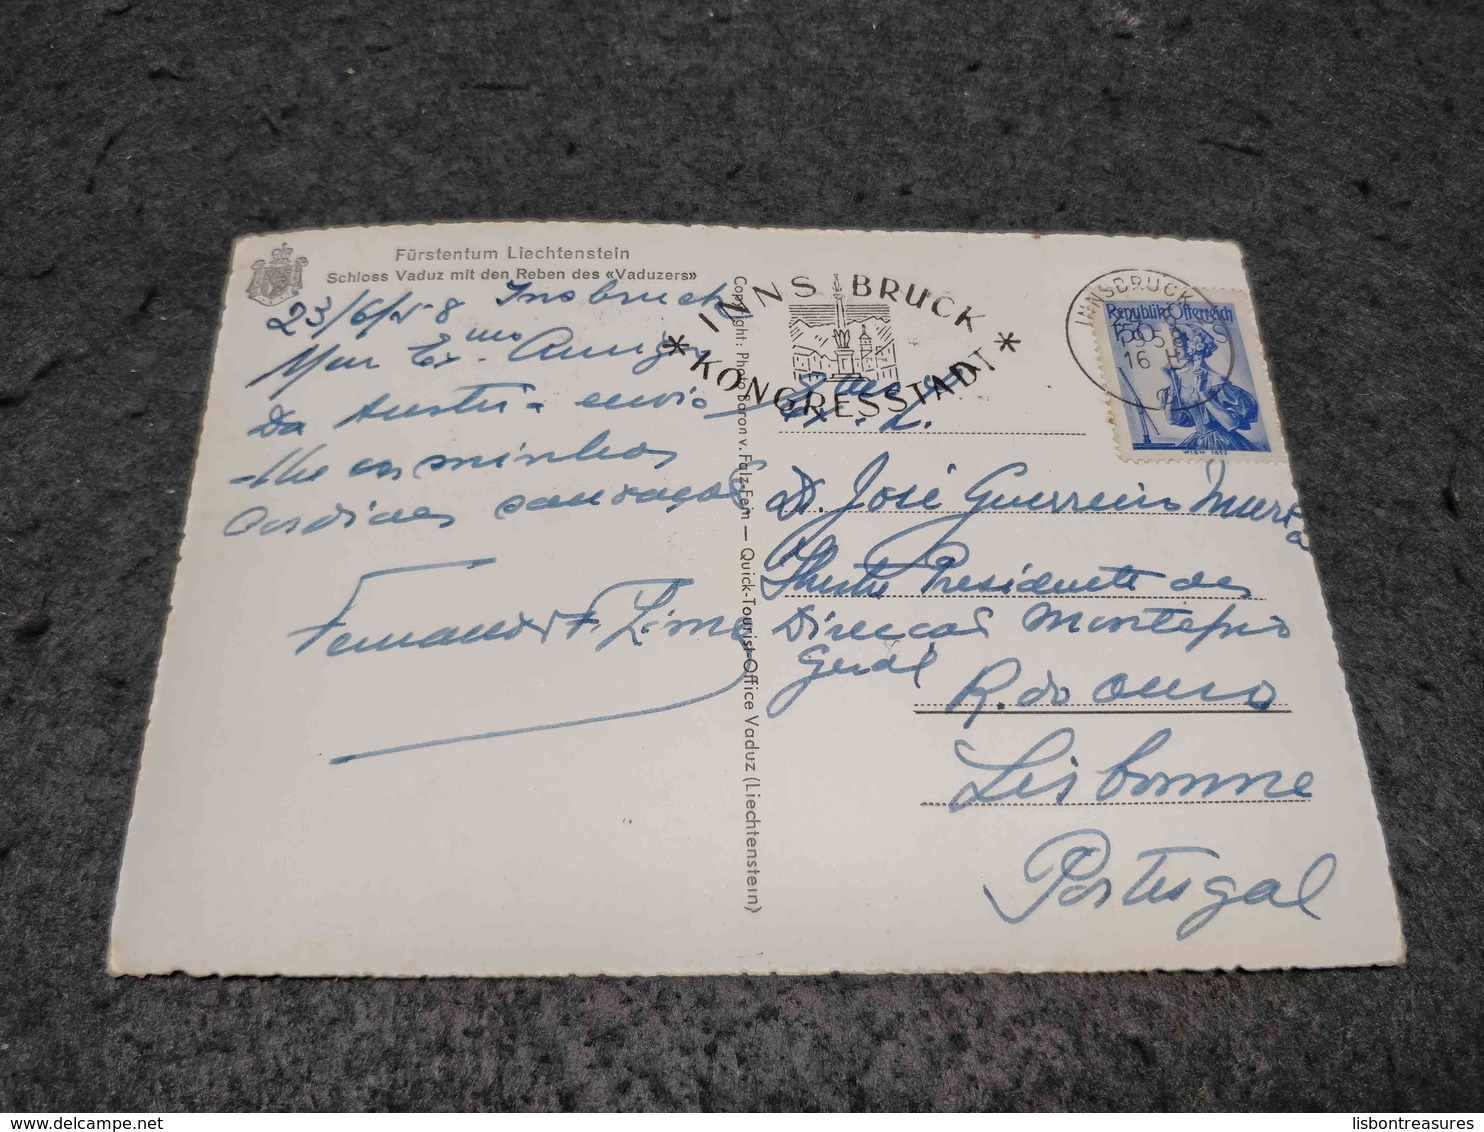 Fürstentum Liechtenstein
Schloss Vaduz mit den Reben des «Vaduzers»
23/6/58 Insbruck
Meu Ex.mo Amigo
Da Austria envio
-lhe as minhas
cordiaes saudações
Fernando F. Lima
Copyright: Photo Baron v. Falz-Fein — Quick-Tourist-Office Vaduz (Liechtenstein)
INNSBRUCK
* KONGRESSTADT *
INNSBRUCK
16
Republik Österreich
WIEN 1853
Ex.
D. José Guerreiro Murta
Ilustre Presidente da
Direcção Montepio
Geral
R. do Ouro
Lisbonne
Portugal
lisbontreasures.com